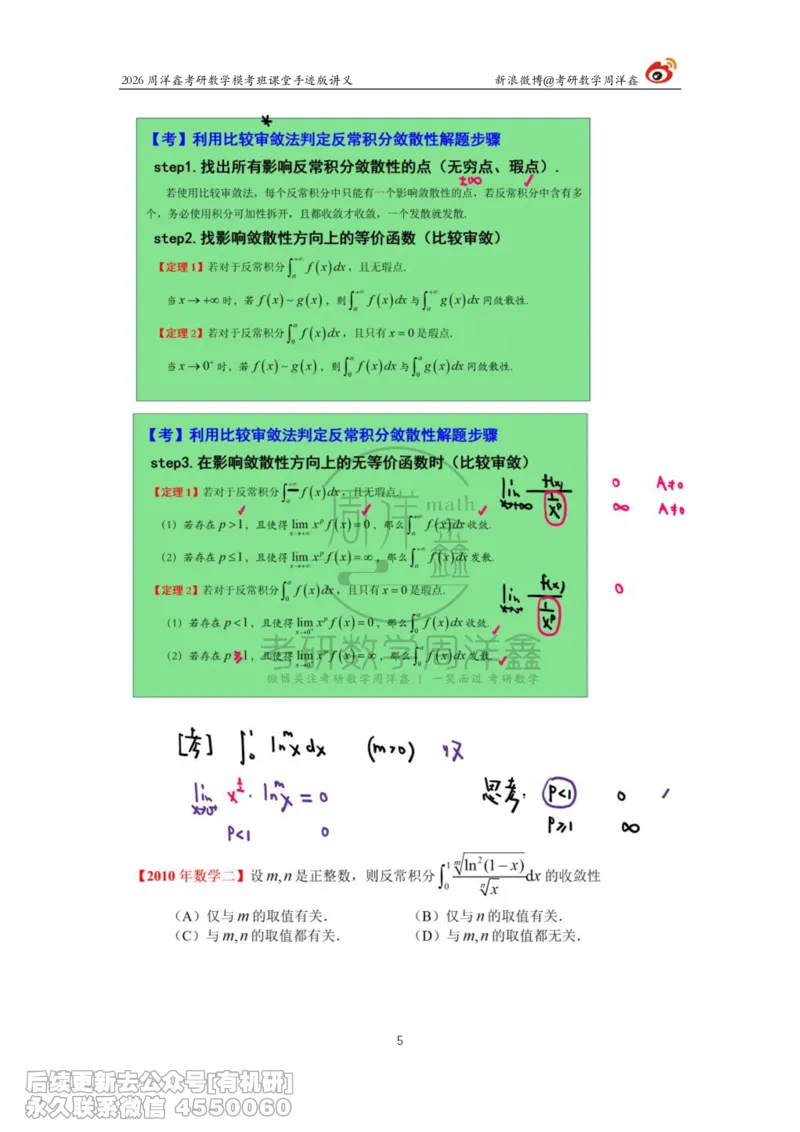 2026 周洋鑫考研数学模考班课堂手迹版讲义 新浪微博@考研数学周洋鑫
*
【考】利用比较审敛法判定反常积分敛散性解题步骤
step1.找出所有影响反常积分敛散性的点（无穷点、瑕点）.
±∞ ✓
若使用比较审敛法，每个反常积分中只能有一个影响敛散性的点，若反常积分中含有多
个，务必使用积分可加性拆开，且都收敛才收敛，一个发散就发散.
step2.找影响敛散性方向上的等价函数（比较审敛）
【定理1】若对于反常积分∫_a^{+∞} f(x)dx，且无瑕点.
当 x→+∞ 时，若 f(x)~g(x)，则∫_a^{+∞} f(x)dx 与∫_a^{+∞} g(x)dx 同敛散性.
【定理2】若对于反常积分∫_0^a f(x)dx，且只有 x=0 是瑕点.
当 x→0⁺ 时，若 f(x)~g(x)，则∫_0^a f(x)dx 与∫_0^a g(x)dx 同敛散性.
【考】利用比较审敛法判定反常积分敛散性解题步骤
step3.在影响敛散性方向上的无等价函数时（比较审敛）
【定理1】若对于反常积分∫_a^{+∞} f(x)dx，且无瑕点.
lim_{x→+∞} f(x)/(1/x^p) 0 A≠0
∞ A≠0
（1）若存在 p>1，且使得 lim_{x→+∞} x^p f(x)=0，那么∫_a^{+∞} f(x)dx 收敛.
（2）若存在 p≤1，且使得 lim_{x→+∞} x^p f(x)=∞，那么∫_a^{+∞} f(x)dx 发散.
【定理2】若对于反常积分∫_0^a f(x)dx，且只有 x=0 是瑕点.
lim_{x→0⁺} f(x)/(1/x^p) 0
（1）若存在 p<1，且使得 lim_{x→0⁺} x^p f(x)=0，那么∫_0^a f(x)dx 收敛.
（2）若存在 p≥1，且使得 lim_{x→0⁺} x^p f(x)=∞，那么∫_0^a f(x)dx 发散.
周洋鑫 math
考研数学周洋鑫
微博关注考研数学周洋鑫 | 一笑而过 考研数学
[考] ∫_0^1 ln^m x dx (m>0) 收
lim_{x→0⁺} x^{1/2}·ln^m x = 0
P<1 0
思考: P<1 0
P≥1 ∞
【2010 年数学二】设 m,n 是正整数，则反常积分∫_0^1 \sqrt[m]{ln²(1−x)}/\sqrt[n]{x} dx 的收敛性
（A）仅与 m 的取值有关. （B）仅与 n 的取值有关.
（C）与 m,n 的取值都有关. （D）与 m,n 的取值都无关.
5
后续更新去公众号[有机研]
永久联系微信 4550060